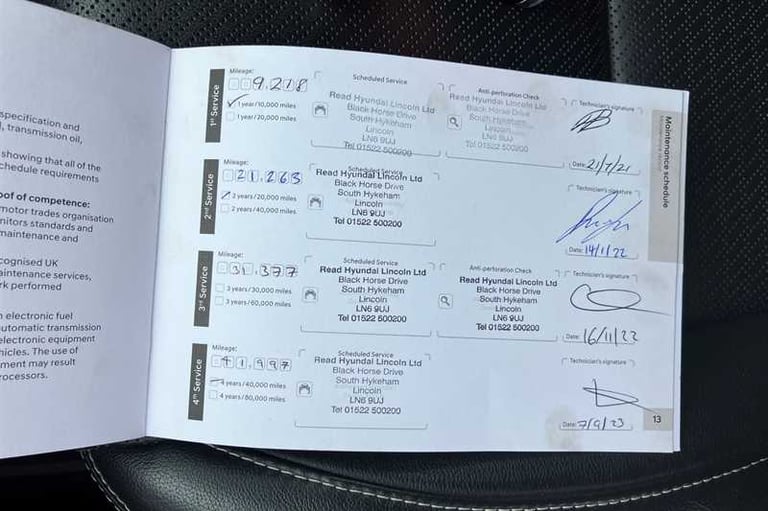 specification and
, transmission oil,
showing that all of the
chedule requirements
oof of competence:
motor trades organisation
nitors standards and
maintenance and
cognised UK
aintenance services,
rk performed
n electronic fuel
utomatic transmission
electronic equipment
hicles. The use of
ment may result
rocessors.
Maintenance schedule
1st Service
Mileage:
9,218
1 year/10,000 miles
1 year/20,000 miles
Scheduled Service
Read Hyundai Lincoln Ltd
Black Horse Drive
South Hykeham
Lincoln
LN6 9UJ
Tel 01522 500200
Anti-perforation Check
Read Hyundai Lincoln Ltd
Black Horse Drive
South Hykeham
Lincoln
LN6 9UJ
Tel 01522 500200
Technician's signature
Date: 21/7/21
2nd Service
Mileage:
21,263
2 years/20,000 miles
2 years/40,000 miles
Scheduled Service
Read Hyundai Lincoln Ltd
Black Horse Drive
South Hykeham
Lincoln
LN6 9UJ
Tel 01522 500200
Technician's signature
Date: 14/1/22
3rd Service
Mileage:
31,377
3 years/30,000 miles
3 years/60,000 miles
Scheduled Service
Read Hyundai Lincoln Ltd
Black Horse Drive
South Hykeham
Lincoln
LN6 9UJ
Tel 01522 500200
Anti-perforation Check
Read Hyundai Lincoln Ltd
Black Horse Drive
South Hykeham
Lincoln
LN6 9UJ
Tel 01522 500200
Technician's signature
Date: 16/11/22
4th Service
Mileage:
41,997
4 years/40,000 miles
4 years/80,000 miles
Scheduled Service
Read Hyundai Lincoln Ltd
Black Horse Drive
South Hykeham
Lincoln
LN6 9UJ
Tel 01522 500200
Technician's signature
Date: 7/9/23
13